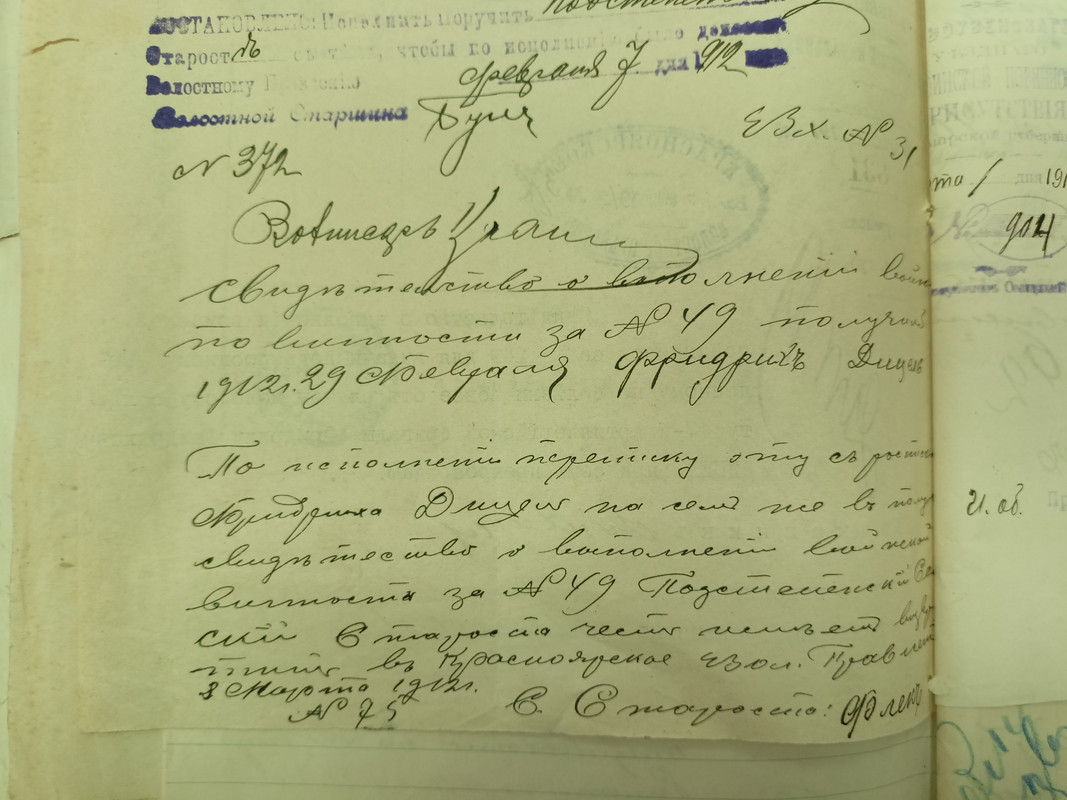 ПОСТАНОВЛЕНО: Исполнить поручить
Старостѣ съ тѣмъ, чтобы по исполненію было донесено
Волостному Правленію февраля 7 дня 1912
Волостной Старшина
№ 372
Вх № 31
свидѣтельство о выполненіи воин
повинности за № 49 получилъ
1912 г. 29 Февраля Фридрихъ Дицель
По исполненіи переписку эту съ роспис
Фридриха Дицеля на семъ же въ полу
свидѣтество о выполненіи воинской
винности за № 49 Подстепенскій Сель
скій Староста честь имѣетъ возвра
тить въ Красноярское Вол. Правлен
3 Марта 1912 г.
№ 75 С. Староста:
рта 1 дня 191
904
21. об.